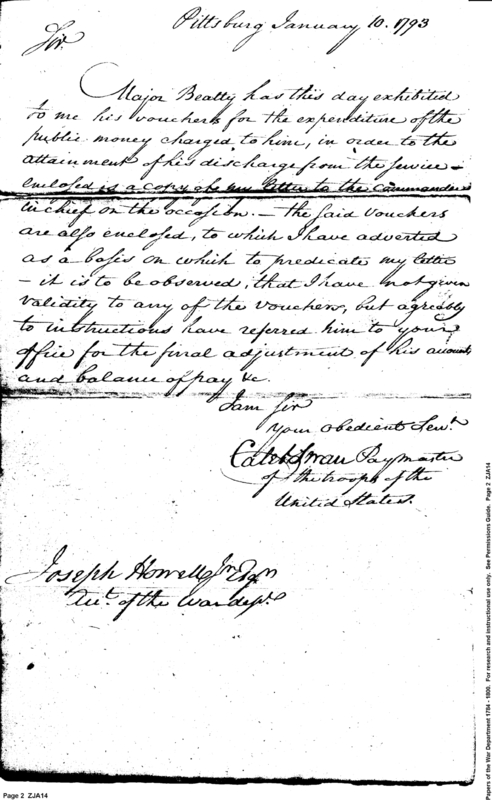 Pittsburg January 10. 1793
Sir.
Major Beatty has this day exhibited
to me his vouchers for the expenditure of the
public money charged to him, in order to the
attainment of his discharge from the service –
enclosed is a copy of my letter to the Commander
in chief on the occasion. – the said vouchers
are also enclosed, to which I have adverted
as a basis on which to predicate my letter
– it is to be observed, that I have not given
validity to any of the vouchers, but agreeably
to instructions have referred him to your
office for the final adjustment of his accounts
and balance of pay &c.
I am Sir
your obedient Servt.
Caleb Swan Paymaster
of the troops of the
United States.
Joseph Howell Jnr Esqr
Act. of the War dept.
Page 2 ZJA14
Papers of the War Department 1784 - 1800. For research and instructional use only. See Permissions Guide. Page 2 ZJA14